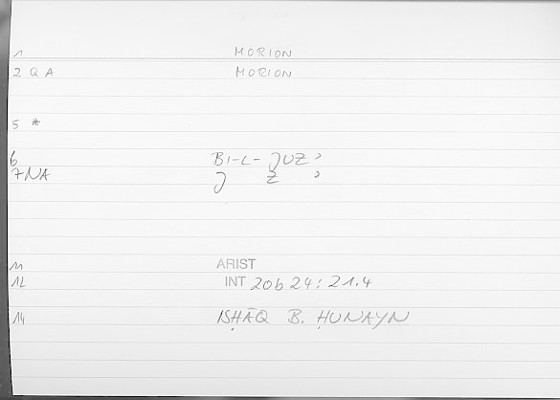 1 MORION
2 Q A MORION
5 *
6 BI-L-JUZʾ
7 NA J Z ʾ
11 ARIST
12 INT 20b 24 : 21.4
14 ISḤĀQ B. ḤUNAYN